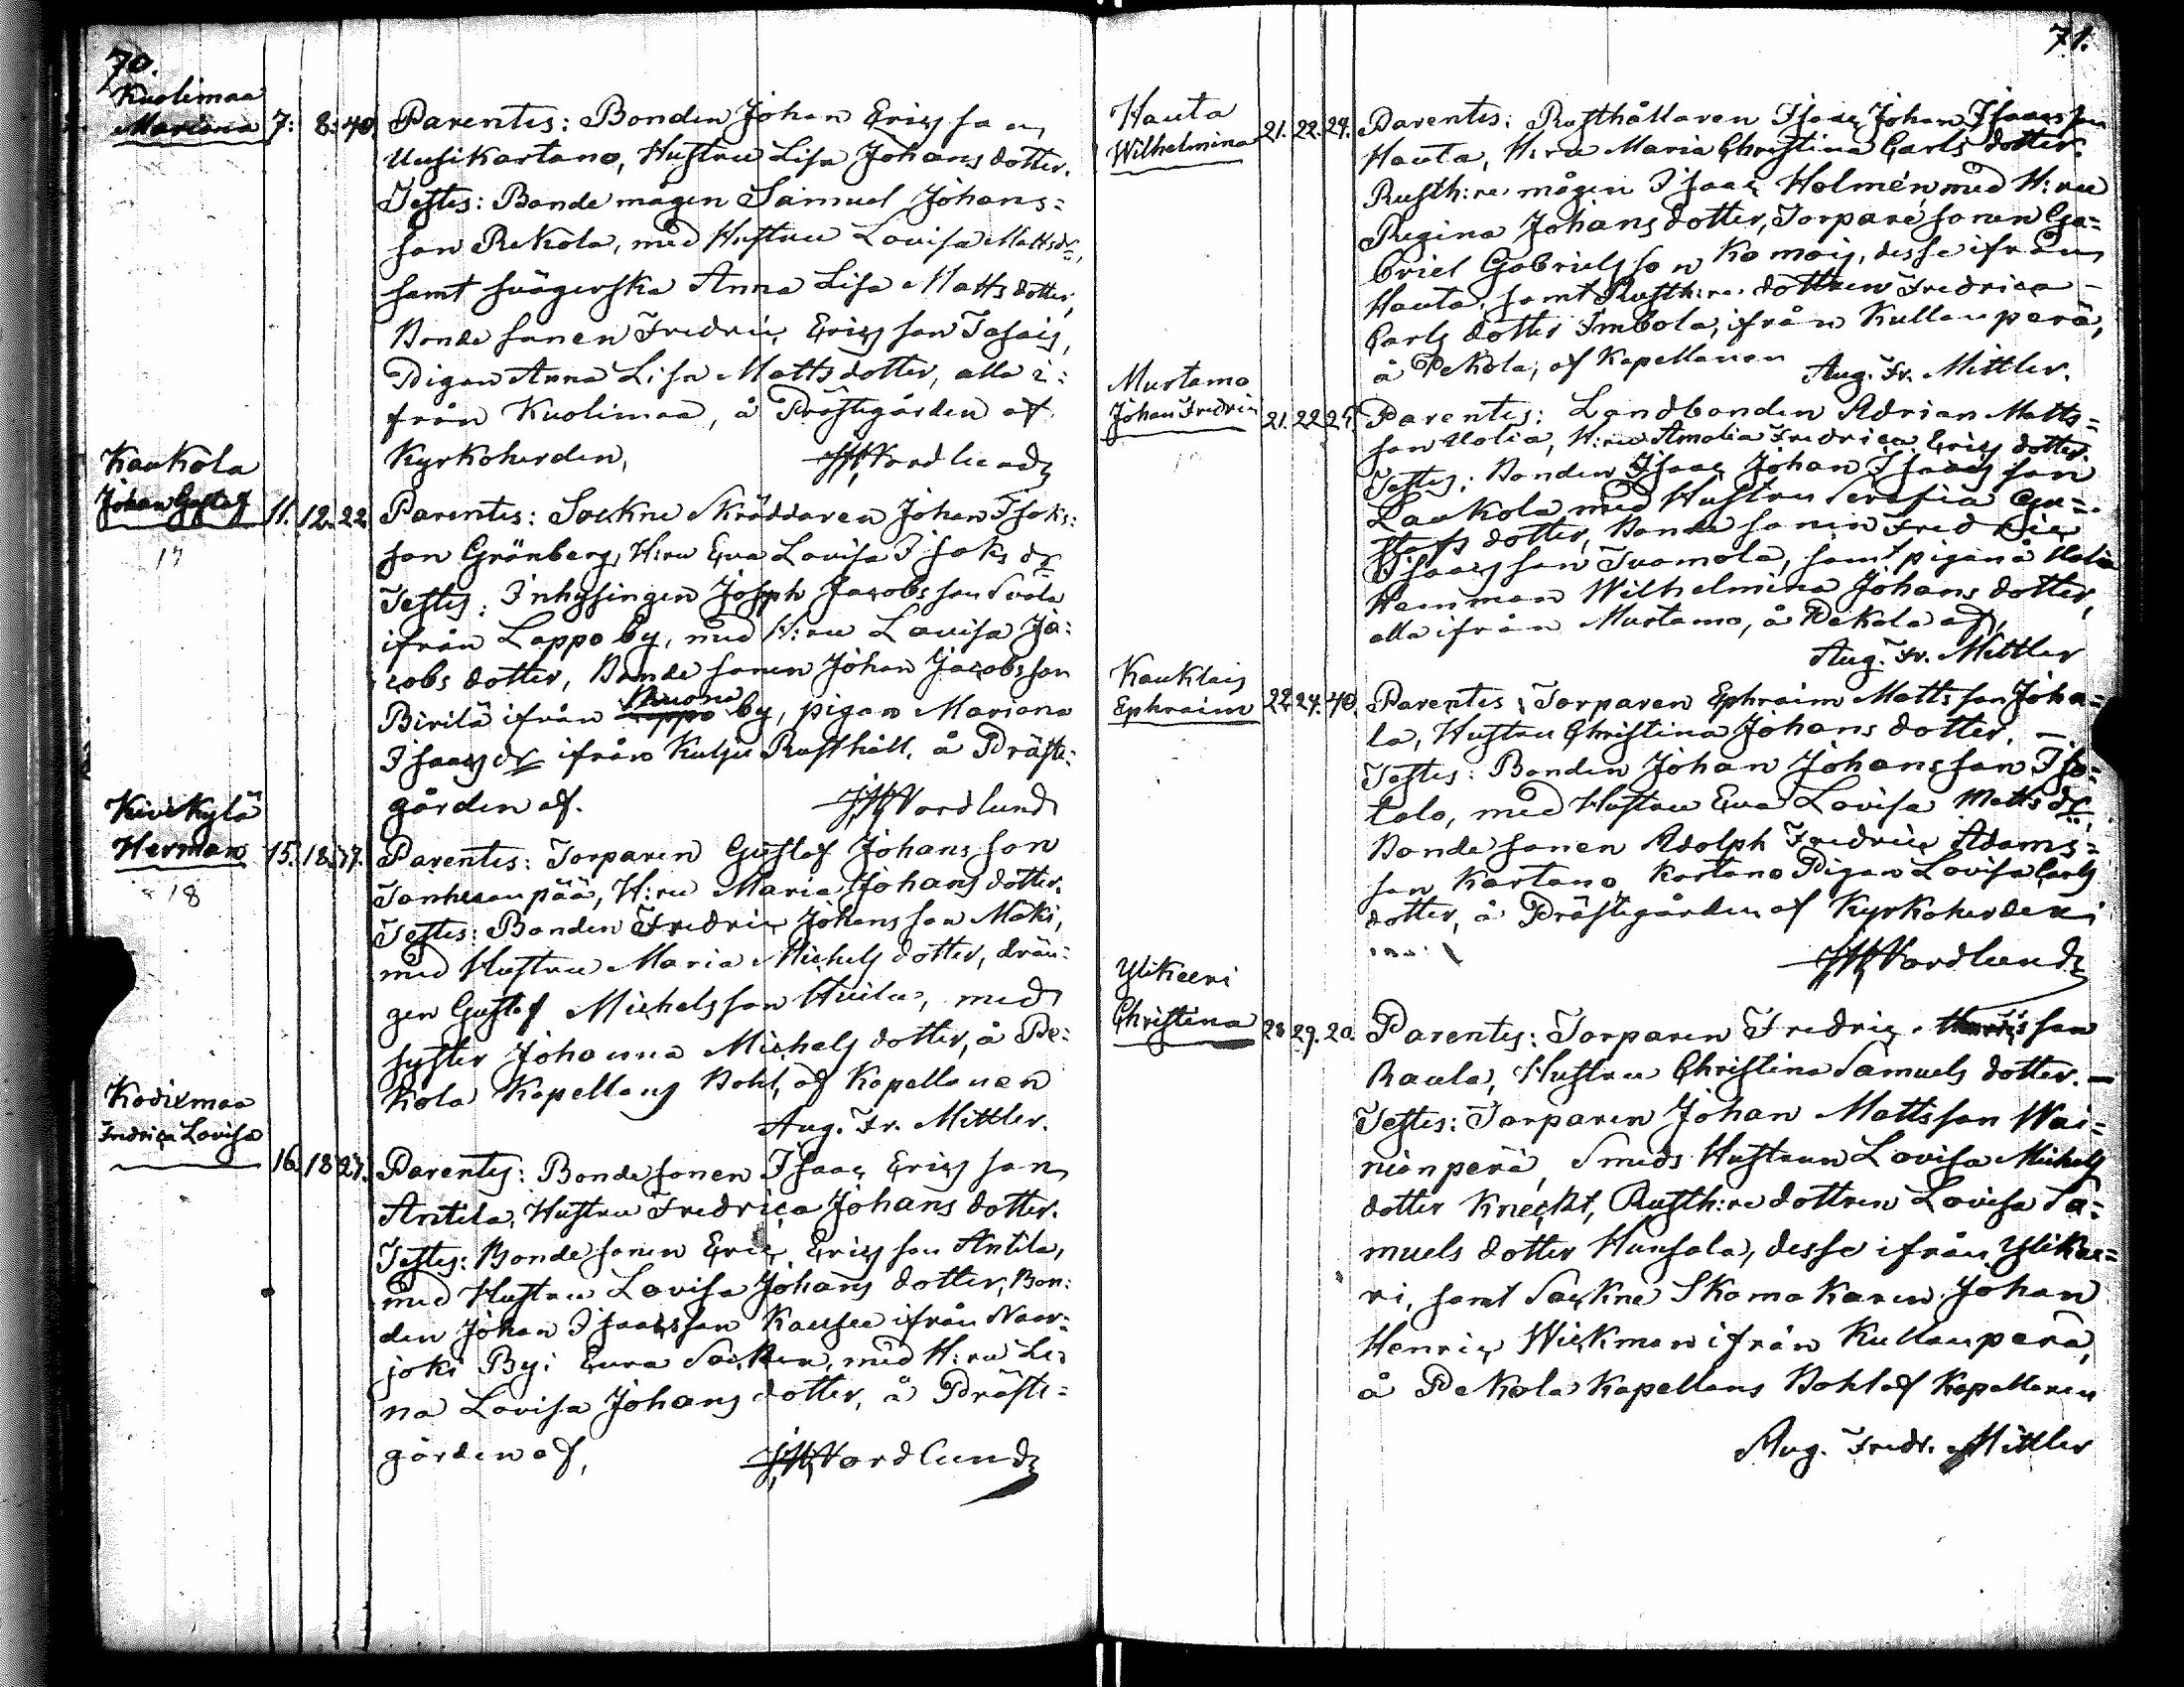 70.
Kuolimaa
Mariana 7: 8: 40
Parentes: Bonden Johan Ericsson
Uusikartano, Hustru Lisa Johansdotter.
Testes: Bondemågen Samuel Johans=
son Rekola, med Hustru Lovisa Mattsdr,
samt svägerska Anna Lisa Mattsdotter,
Bondesonen Fredric Ericsson Tasais,
Pigan Anna Lisa Mattsdotter, alla i:
från Kuolimaa, å Prästegården af
Kyrkoherden, Nordlund
Kaukola
Johan Gustaf 11. 12. 22
17
Parentes: Sockne Skräddaren Johan Isaks:
son Grönberg, H:ru Eva Lovisa Isaks dr
Testes: Inhysingen Joseph Jacobsson
ifrån Lappo by, med H:ru Lovisa Ja:
cobs dotter, Bondesonen Johan Jacobsson
Birilä ifrån by, pigan Mariana
Isaacs dr ifrån Kulju Rusthåll, å Präste:
gården af. Nordlund
Kivikylä
Herman 15. 18. 37.
18
Parentes: Torparen Gustaf Johansson
Tanhuanpää, H:ru Maria Johans dotter.
Testes: Bonden Fredric Johansson Mäki,
med Hustru Maria Michels dotter, drän:
gen Gustaf Michelsson Huilu, med
syster Johanna Michels dotter, å Pe:
kola Kapellans Bohl, af Kapellanen
Aug. Fr. Mittler.
Kodixmaa
Fredrica Lovisa
16. 18 27.
Parentes: Bondesonen Isaac Ericsson
Antila, Hustru Fredrica Johans dotter.
Testes: Bondesonen Eric Ericsson Antila,
med Hustru Lovisa Johans dotter, Bon:
den Johan Isaacsson Kausee ifrån Naar=
joki By i Eura Socken, med H:ru Le=
na Lovisa Johans dotter, å Präste=
gården af, Nordlund
71.
Hauta
Wilhelmina 21. 22. 29.
Parentes: Rusthållaren Isaac Johan Isaacsson
Hauta, H:ru Maria Christina Carls dotter.
Rusth:re mågen Isaac Holmén, med H:ru
Regina Johans dotter, Torparesonen Ga=
briel Gabrielsson Komois, desse ifrån
Hauta, samt Rusth:re dottren Fredrica
Carls dotter Imbola, ifrån Kullanperä,
å Pekola, af Kapellanen Aug. Fr. Mittler.
Mustamo
Johan Fredric 21. 22
Parentes: Landbonden Adrian Matts=
son Uotia, H:ru Amalia Fredrica Erics dotter.
Testes: Bonden Isaac Johan Isaacsson
Laukola med Hustru Serafia Gu=
stafs dotter, Bondesonen Fredric
Isaacsson Tuomola, samt pigan å Uotia
Hemman Wilhelmina Johans dotter,
alla ifrån Mustamo, å Pekola af,
Aug. Fr. Mittler
Kauklais
Ephraim 22. 24. 40.
Parentes: Torparen Ephraim Mattsson Joha=
la, Hustru Christina Johans dotter. —
Testes: Bonden Johan Johansson Iso=
talo, med Hustru Eva Lovisa Mattsdr,
Bondesonen Adolph Fredric Adams=
son Kartano, Kartano Pigan Lovisa Carls
dotter, å Prästegården af Kyrkoherden
Nordlund
Ylikeeri
Christina 28 29. 20.
Parentes: Torparen Fredric son
Raula, Hustru Christina Samuels dotter. —
Testes: Torparen Johan Mattsson Wai=
niönperä, Smeds Hustrun Lovisa Michels
dotter Knecht, Rusth:re dottren Lovisa Sa=
muels dotter Hunsala, desse ifrån Ylikee=
ri, samt Sockne Skomakaren Johan
Henric Wickman ifrån Kullanperä,
å Pekola Kapellans Bohl af Kapellanen
Aug. Fredr. Mittler